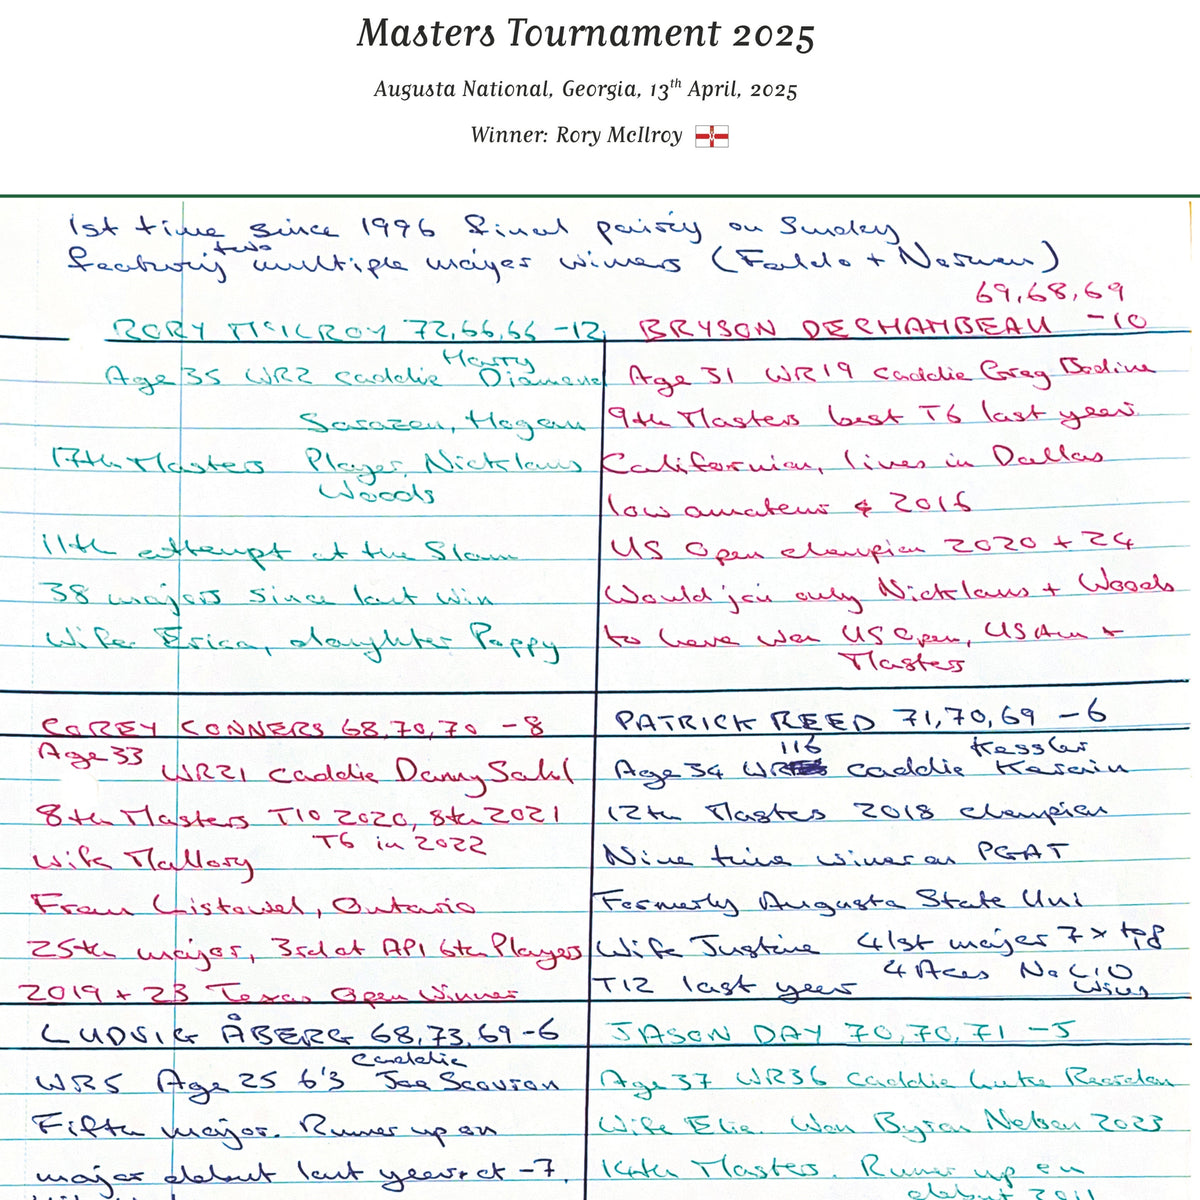 Masters Tournament 2025
Augusta National, Georgia, 13th April, 2025
Winner: Rory McIlroy
1st time since 1996 final pairing on Sunday
featuring two multiple major winners (Faldo + Norman)
RORY McILROY 72,66,66 -12
Age 35 WR2 caddie Harry Diamond
Sarazen, Hogan
17th Masters Player, Nicklaus
Woods
11th attempt at the Slam
38 majors since last win
Wife Erica, daughter Poppy
69,68,69
BRYSON DECHAMBEAU -10
Age 31 WR19 caddie Greg Bodine
9th Masters best T6 last year
Californian, lives in Dallas
low amateur 2016
US Open champion 2020 + 24
Would join only Nicklaus + Woods
to have won US Open, US Am +
Masters
COREY CONNERS 68,70,70 -8
Age 33 WR21 caddie Danny Sahl
8th Masters T10 2020, 8th 2021
T6 in 2022
Wife Mallory
From Listowel, Ontario
25th major, 3rd at API 6th Players
2019 + 23 Texas Open Winner
PATRICK REED 71,70,69 -6
Age 34 WR 116 caddie Kessler Karain
12th Masters 2018 champion
Nine time winner on PGAT
Formerly Augusta State Uni
Wife Justine 41st major 7 x top 8
T12 last year 4 Aces No LIV
wins
LUDVIG ÅBERG 68,73,69 -6
WR5 Age 25 6'3 caddie Joe Scovron
Fifth major. Runner up on
major debut last year at -7.
JASON DAY 70,70,71 -5
Age 37 WR36 caddie Luke Reardon
Wife Ellie. Won Byron Nelson 2023
14th Masters. Runner up on
debut 2011